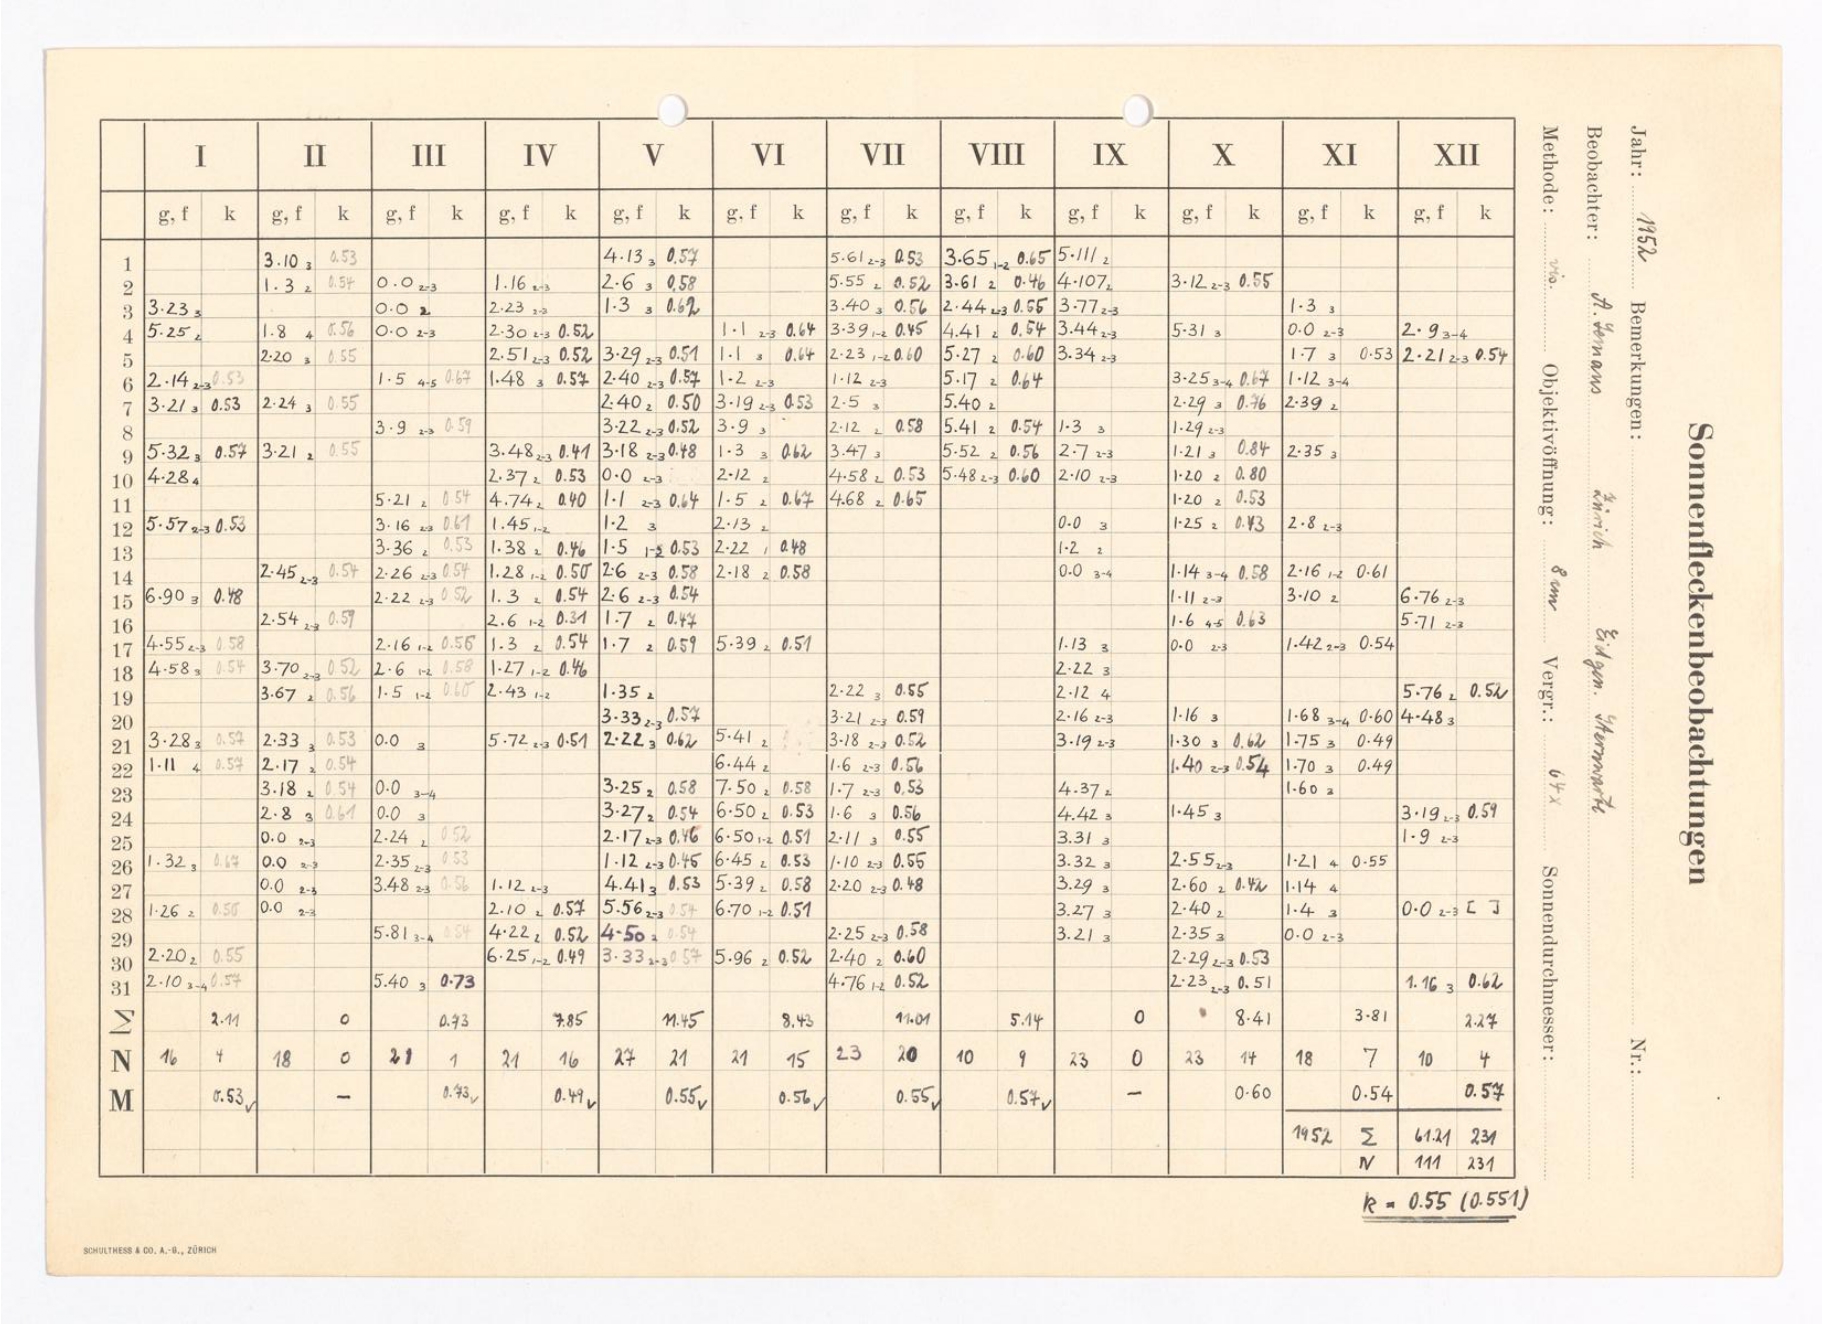 I II III IV V VI VII VIII IX X XI XII
g, f k g, f k g, f k g, f k g, f k g, f k g, f k g, f k g, f k g, f k g, f k g, f k
1 3.10 3 0.53 4.13 3 0.57 5.61 2-3 0.53 3.65 1-2 0.65 5.111 2
2 1.3 2 0.54 0.0 2-3 1.16 2-3 2.6 3 0.58 5.55 2 0.52 3.61 2 0.46 4.107 2 3.12 2-3 0.55
3 3.23 3 0.0 2 2.23 2-3 1.3 3 0.62 3.40 3 0.56 2.44 2-3 0.55 3.77 2-3 1.3 3
4 5.25 2 1.8 4 0.56 0.0 2-3 2.30 2-3 0.52 1.1 2-3 0.64 3.39 1-2 0.45 4.41 2 0.54 3.44 2-3 5.31 3 0.0 2-3 2.9 3-4
5 2.20 3 0.55 2.51 2-3 0.52 3.29 2-3 0.51 1.1 3 0.64 2.23 1-2 0.60 5.27 2 0.60 3.34 2-3 1.7 3 0.53 2.21 2-3 0.54
6 2.14 2-3 0.53 1.5 4-5 0.67 1.48 3 0.57 2.40 2-3 0.57 1.2 2-3 1.12 2-3 5.17 2 0.64 3.25 3-4 0.67 1.12 3-4
7 3.21 3 0.53 2.24 3 0.55 2.40 2 0.50 3.19 2-3 0.53 2.5 3 5.40 2 2.29 3 0.76 2.39 2
8 3.9 2-3 0.59 3.22 2-3 0.52 3.9 3 2.12 2 0.58 5.41 2 0.54 1.3 3 1.29 2-3
9 5.32 3 0.57 3.21 2 0.55 3.48 2-3 0.41 3.18 2-3 0.48 1.3 3 0.62 3.47 3 5.52 2 0.56 2.7 2-3 1.21 3 0.84 2.35 3
10 4.28 4 2.37 2 0.53 0.0 2-3 2.12 2 4.58 2 0.53 5.48 2-3 0.60 2.10 2-3 1.20 2 0.80
11 5.21 2 0.54 4.74 2 0.40 1.1 2-3 0.64 1.5 2 0.67 4.68 2 0.65 1.20 2 0.53
12 5.57 2-3 0.53 3.16 2-3 0.61 1.45 1-2 1.2 3 2.13 2 0.0 3 1.25 2 0.43 2.8 2-3
13 3.36 2 0.53 1.38 2 0.46 1.5 1-2 0.53 2.22 1 0.48 1.2 2
14 2.45 2-3 0.54 2.26 2-3 0.54 1.28 1-2 0.50 2.6 2-3 0.58 2.18 2 0.58 0.0 3-4 1.14 3-4 0.58 2.16 1-2 0.61
15 6.90 3 0.48 2.22 2-3 0.52 1.3 2 0.54 2.6 2-3 0.54 1.11 2-3 3.10 2 6.76 2-3
16 2.54 2-3 0.59 2.6 1-2 0.31 1.7 2 0.47 1.6 4-5 0.63 5.71 2-3
17 4.55 2-3 0.58 2.16 1-2 0.56 1.3 2 0.54 1.7 2 0.59 5.39 2 0.51 1.13 3 0.0 2-3 1.42 2-3 0.54
18 4.58 3 0.54 3.70 2-3 0.52 2.6 1-2 0.58 1.27 1-2 0.46 2.22 3
19 3.67 2 0.56 1.5 1-2 0.60 2.43 1-2 1.35 2 2.22 3 0.55 2.12 4 5.76 2 0.52
20 3.33 2-3 0.57 3.21 2-3 0.59 2.16 2-3 1.16 3 1.68 3-4 0.60 4.48 3
21 3.28 3 0.57 2.33 3 0.53 0.0 3 5.72 2-3 0.51 2.22 3 0.62 5.41 2 3.18 2-3 0.52 3.19 2-3 1.30 3 0.62 1.75 3 0.49
22 1.11 4 0.57 2.17 2 0.54 6.44 2 1.6 2-3 0.56 1.40 2-3 0.54 1.70 3 0.49
23 3.18 2 0.54 0.0 3-4 3.25 2 0.58 7.50 2 0.58 1.7 2-3 0.53 4.37 2 1.60 2
24 2.8 3 0.61 0.0 3 3.27 2 0.54 6.50 2 0.53 1.6 3 0.56 4.42 3 1.45 3 3.19 2-3 0.59
25 0.0 2-3 2.24 2 0.52 2.17 2-3 0.46 6.50 1-2 0.51 2.11 3 0.55 3.31 3 1.9 2-3
26 1.32 3 0.67 0.0 2-3 2.35 2-3 0.53 1.12 2-3 0.45 6.45 2 0.53 1.10 2-3 0.55 3.32 3 2.55 2-3 1.21 4 0.55
27 0.0 2-3 3.48 2-3 0.56 1.12 2-3 4.41 3 0.53 5.39 2 0.58 2.20 2-3 0.48 3.29 3 2.60 2 0.42 1.14 4
28 1.26 2 0.56 0.0 2-3 2.10 2 0.57 5.56 2-3 0.54 6.70 1-2 0.51 3.27 3 2.40 2 1.4 3 0.0 2-3 [ ]
29 5.81 3-4 0.54 4.22 2 0.52 4.50 2 0.54 2.25 2-3 0.58 3.21 3 2.35 3 0.0 2-3
30 2.20 2 0.55 6.25 1-2 0.49 3.33 2-3 0.57 5.96 2 0.52 2.40 2 0.60 2.29 2-3 0.53
31 2.10 3-4 0.57 5.40 3 0.73 4.76 1-2 0.52 2.23 2-3 0.51 1.16 3 0.62
Σ 2.11 0 0.73 7.85 11.45 8.43 11.01 5.14 0 8.41 3.81 2.27
N 16 4 18 0 21 1 21 16 27 21 21 15 23 20 10 9 23 0 23 14 18 7 10 4
M 0.53 – 0.73 0.49 0.55 0.56 0.55 0.57 – 0.60 0.54 0.57
1952 Σ 61.21 231
N 111 231
k = 0.55 (0.551)
SCHULTHESS & CO. A.-G., ZÜRICH
Sonnenfleckenbeobachtungen
Jahr: 1952 Bemerkungen: Nr.:
Beobachter: Zürich Eidgen. Sternwarte
Methode: vis. Objektivöffnung: 8 cm Vergr.: 64x Sonnendurchmesser: